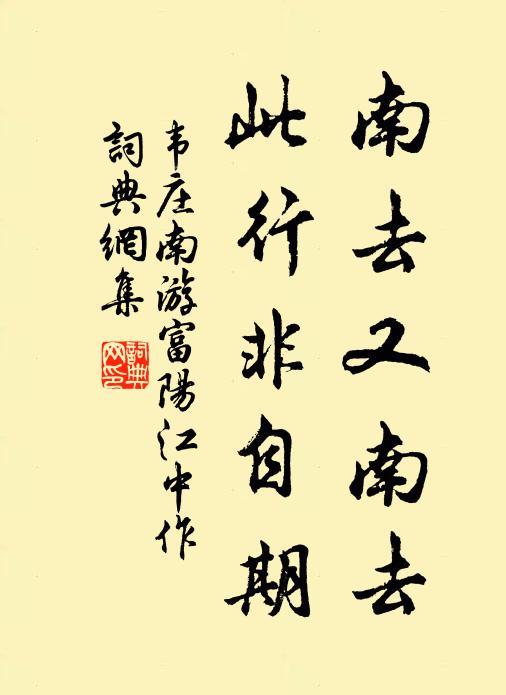 南去又南去
此行非自期
韦庄南游富陽江中作
詞典網集
詞典
网印